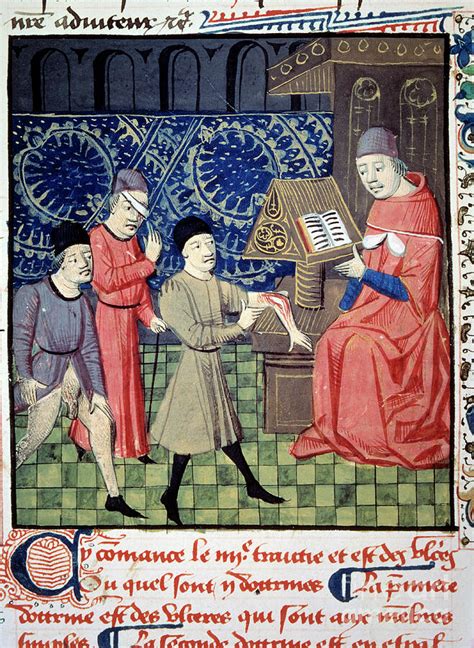 nre aduiteur
Cy comance le iiij.e traictie et est des vlces
Ou quel sont ij doctrines La pmiere
doctrine est des vlceres qui sont aux mebres
simples La seconde doctrine est en